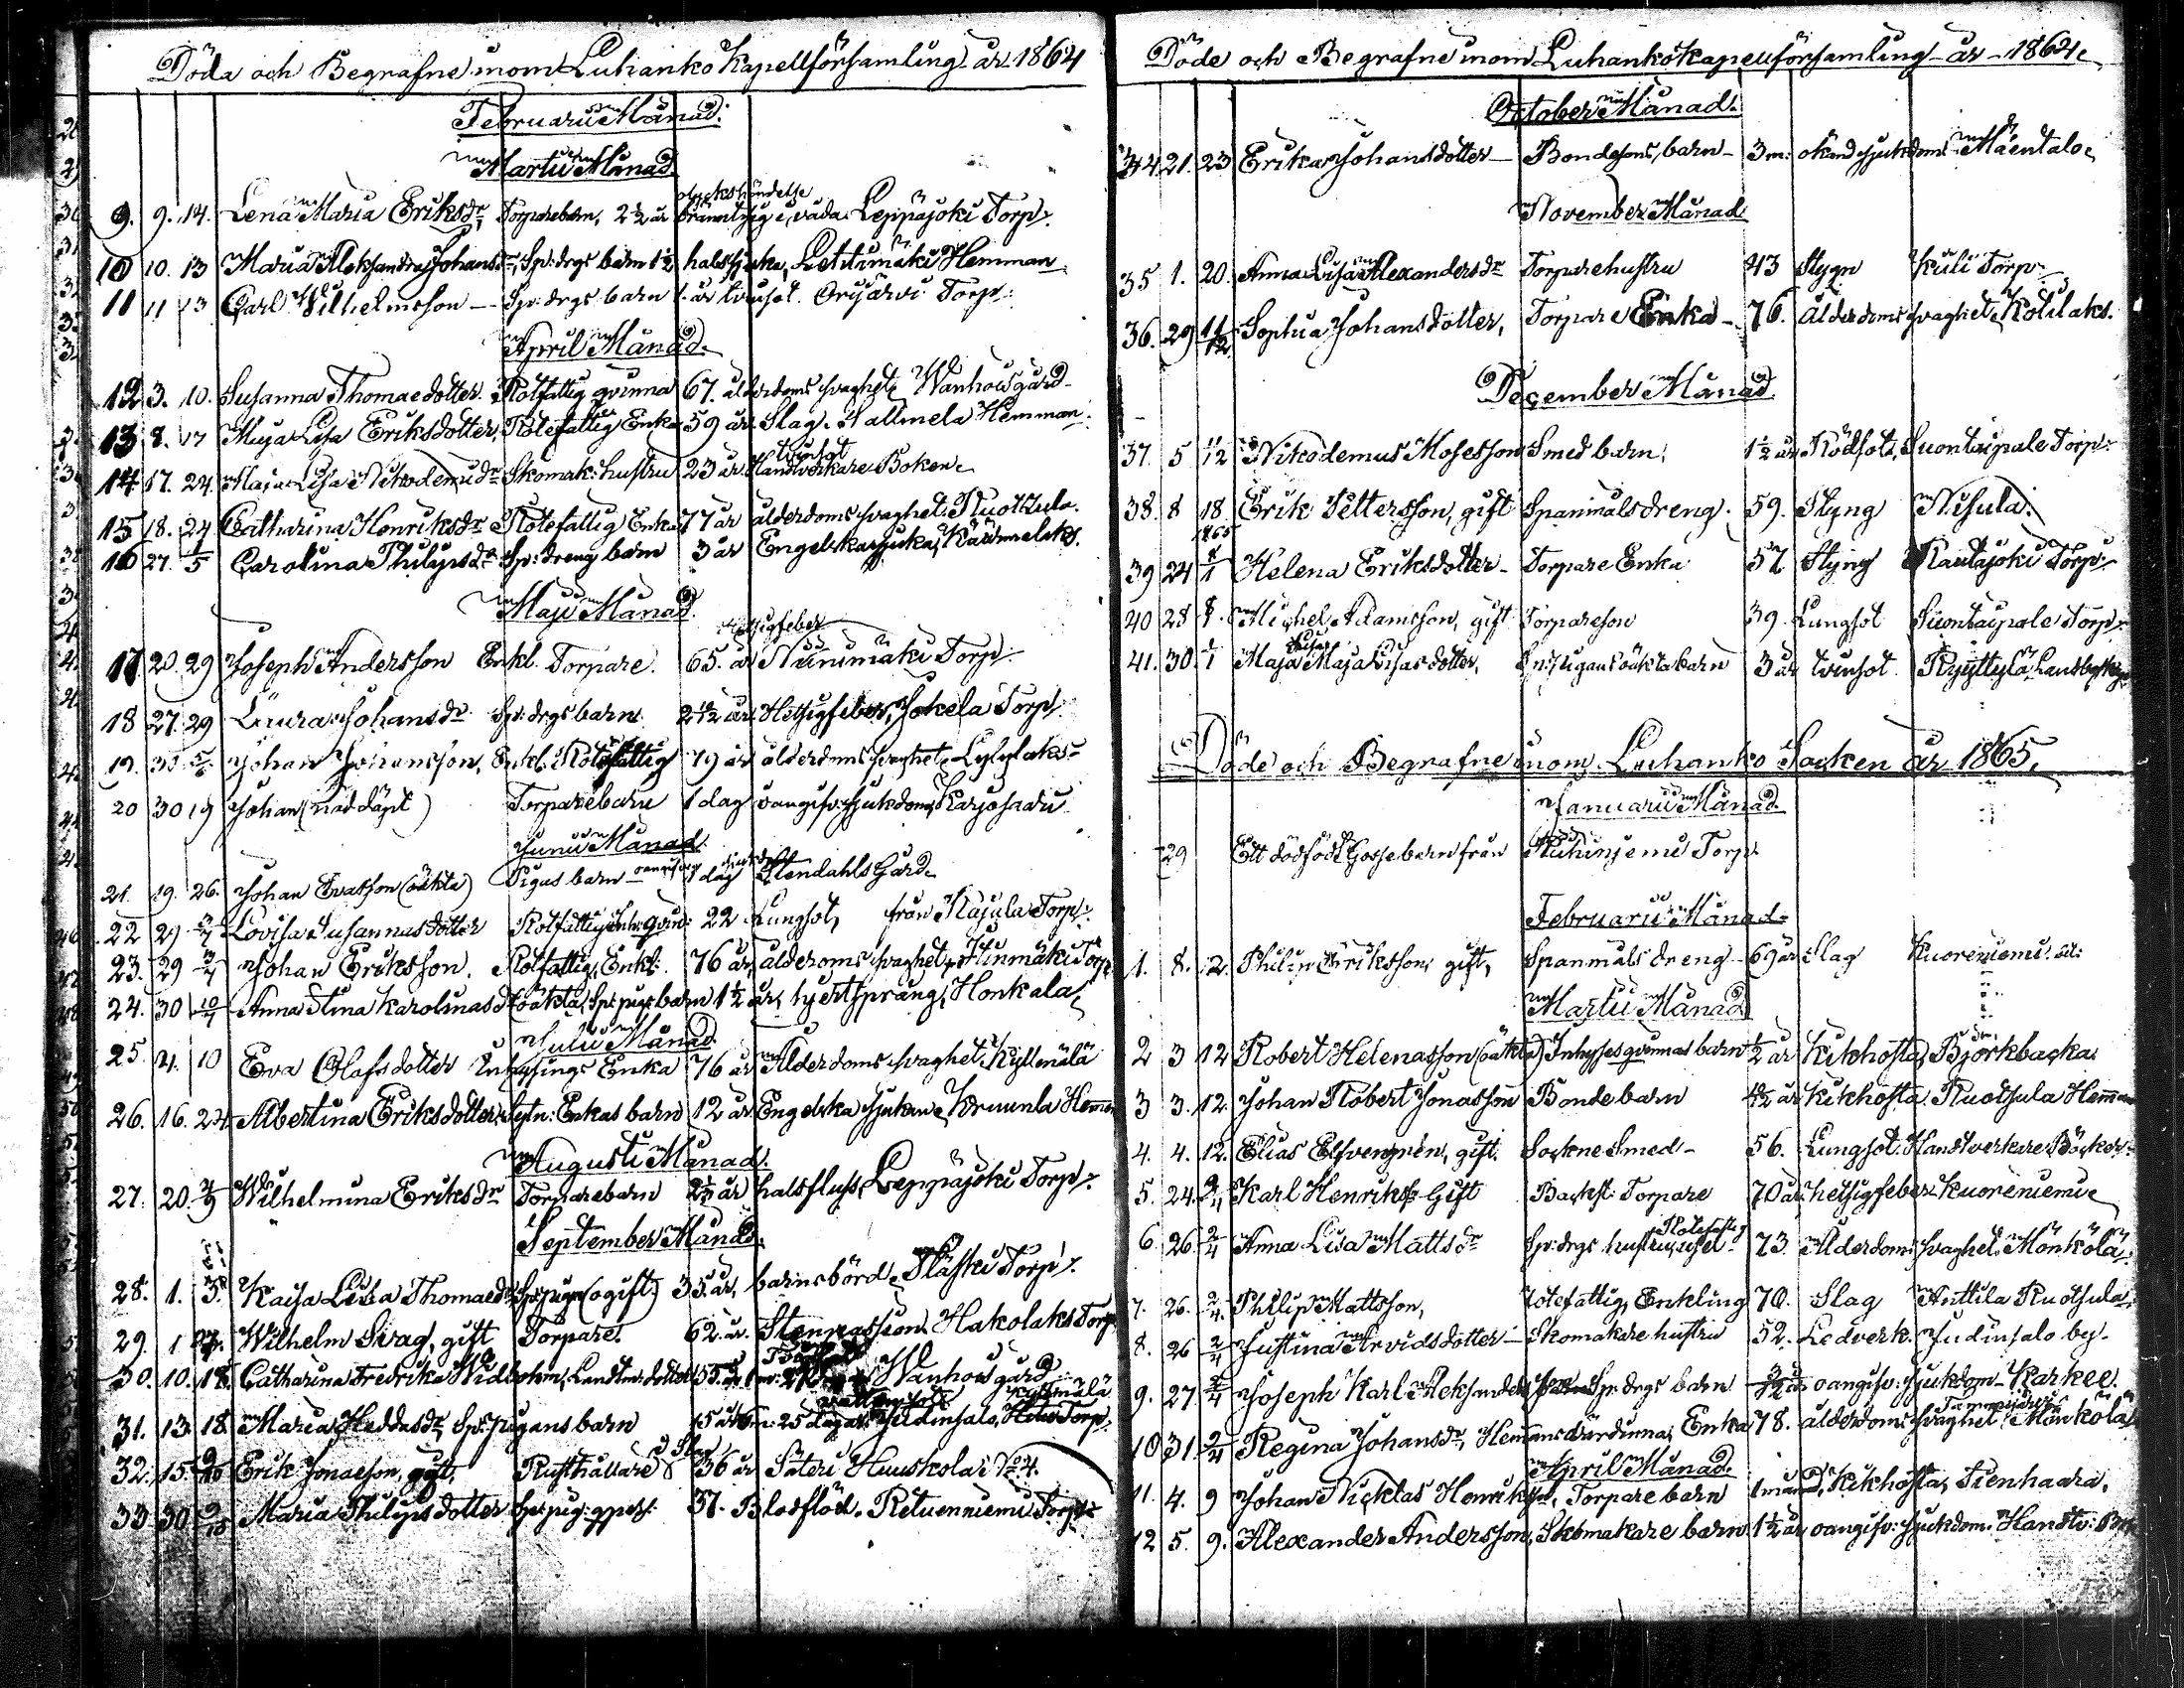 Döda och Begrafne inom Luhanko Kapellförsamling år 1864
Februarii Månad.
Martii Månad
olyckshändelse
9. 9. 14. Lena Maria Eriksdr, Torparebarn, 2½ år i våda. Leppäjoki Torp.
10 10. 13 Maria Aleksandra Johansdr, Sp: drgs barn 1½ halssjuka, Lehtimäki Hemman
11 11 13 Carl Wilhelmsson — Sp: drgs barn 1 år tvinsot. Orijärvi Torp:
April Månad.
12 3. 10. Susanna Thomaedotter. Rotfattig qvinna 67. ålderdoms svaghet, Wanhois gård
13 8. 17 Maja Lisa Eriksdotter, Rotefattig Enka 59 år Slag. Tallmela Hemman.
14. 17. 24. Maja Lisa Nikodemidr Skomak: hustru 23 år tvinsot Handtverkare Boken.
15 18. 24 Catharina Henriksdr Rotefattig Enka 77 år ålderdoms svaghet. Ruotsula.
16 27. 1/5 Carolina Philipsdr Sp: dreng barn 3 år Engelska sjukan,
Maji Månad.
17. 20. 29 Joseph Andersson Enkl. Torpare. 65. år Niinimäki Torp.
18 27. 29 Laura Johansdr Sp: drgs barn 2 år Hetsigfeber, Jokela Torp.
19. 30 Johan Johansson, Enkl. Rotefattig 79 år ålderdoms svaghet, Lylylaks
20 30 19 Johan (nöddöpt) Torparebarn 1 dag oangifv. sjukdom, Karjosaari
Junii Månad.
21. 19. 26. Johan Evasson (oäkta) Pigas barn oangifven sjukdom 1 dag Stendahls Gård.
22 29 3/7 Lovisa Susannasdotter Rotfattig Qvin: 22 Lungsot, från Kajula Torp.
23. 29 3/7 Johan Eriksson. Rotfattig, Enkl. 76 år, ålderoms svaghet, Hinmäki Torp
24. 30 10/7 Anna Stina Karolinasdr oäkta, Sp: pigs barn 1½ år, hjertsprång, Honkala,
Julii Månad.
25. 4. 10 Eva Olafsdotter Inhysings Enka 76 år Ålderdoms svaghet. Kyllmälä
26. 16. 24. Albertina Eriksdotter, Sytn: Enkas barn 12 år Engelska sjukan, Kruunla Hemm
Augusti Månad.
27. 20. Wilhelmina Eriksdr Torparebarn halsfluss, Leppäjoki Torp.
September Månad.
28. 1. 3. Kaisa Lisa Thomaedr Sp: piga (ogift) 35. år, barnsbörd, Pläski Torp.
29. 1 Wilhelm Svag, gift Torpare. 62. år. Stenpassion. Hakolaks Torp
30. 10. 18. Catharina Fredrika Widbohm, Landtm: dotter 55. år Wanhois gård
31. 13. 18. Maria Heddasdr Sp: pigans barn 25 dagar, Vattensot Kyllmälä Judinsalo, Torp.
32. 15. 9/10 Erik Jonasson, gift. Rusthållare Slag 36 år Säteri Huuskola No 4.
33 30. 9/10 Maria Philipsdotter Sp: pig: 37. Blodflöd. Retuenniemi Torp.
Döde och Begrafne inom Luhanko kapellförsamling år 1864.
October Månad.
34 21. 23 Erika Johansdotter — Bondesons barn — 3 m: okänd sjukdom Mäentalo.
November Månad
35 1. 20. Anna Lisa Alexandersdr Torparehustru 43 Stygn Kuli Torp.
36. 29 11/12 Sophia Johansdotter, Torpare Enka — 76. ålderdoms svaghet, Kotilaks.
December Månad.
37. 5 11/12 Nikodemus Mosesson Smed barn, 1½ år Rödsot, Suontaipale Torp.
38. 8 18 Erik Pettersson, gift Spanmålsdreng. 59. Styng Nisula.
1865
39 24 Helena Eriksdotter — Torpare Enka 57. Styng Rautajoki Torp.
40 28 Michel Adamsson, gift Torpareson 39. Lungsot Suontaipale Torp.
41. 30. Maja Maja Lisasdotter, oäkta barn 3 år tvinsot Kyyttylä
Döde och Begrafne inom Luhanko Socken år 1865.
Januarii Månad
29 Ett dödfödt Gossebarn från Ruhinjemi Torp.
Februarii Månad
1. 8. 12. Philip Eriksson, gift, Spanmåls dreng — 69 år Slag Kuoreniemi.
Martii Månad
2 3 12 Robert Helenasson (oäkta) Inhyses qvinnas barn ½ år Kikhosta, Björkbacka
3 3. 12. Johan Robert Jonasson Bonde barn år Kikhosta. Ruotsula Hemman
4. 4. 12. Elias Elfvengren, gift. Sockne Smed — 56. Lungsot. Handtverkare Böcker
5. 24. Karl Henriksson Gift Backst. Torpare 70 år hetsigfeber Kuoreniemi
6. 26. 2/4 Anna Lisa Mattsdr Sp: drgs hustru, Rotefattig 73. Ålderdoms svaghet. Mönkölä.
7. 26. 2/4 Philip Mattsson, rotefattig, Enkling 70. Slag Anttila Ruotsula
8. 26 2/4 Justina Arvidsdotter — Skomakare hustru 52. Ledverk. Judinsalo by.
9. 27 2/4 Joseph Karl Aleksanders Sp: drgs barn oangifv: sjukdom — Karkee.
10 31. 2/4 Regina Johansdr, Hemmans värdinna, Enka 78. ålderdoms svaghet. Mönkölä
April Månad.
11. 4. 9 Johan Nicklas Henriksson, Torpare barn 1 månad, Kikhosta, Tienhaara.
12 5. 9. Alexander Andersson, Skomakare barn 1½ år, oangifv: sjukdom. Handtv: